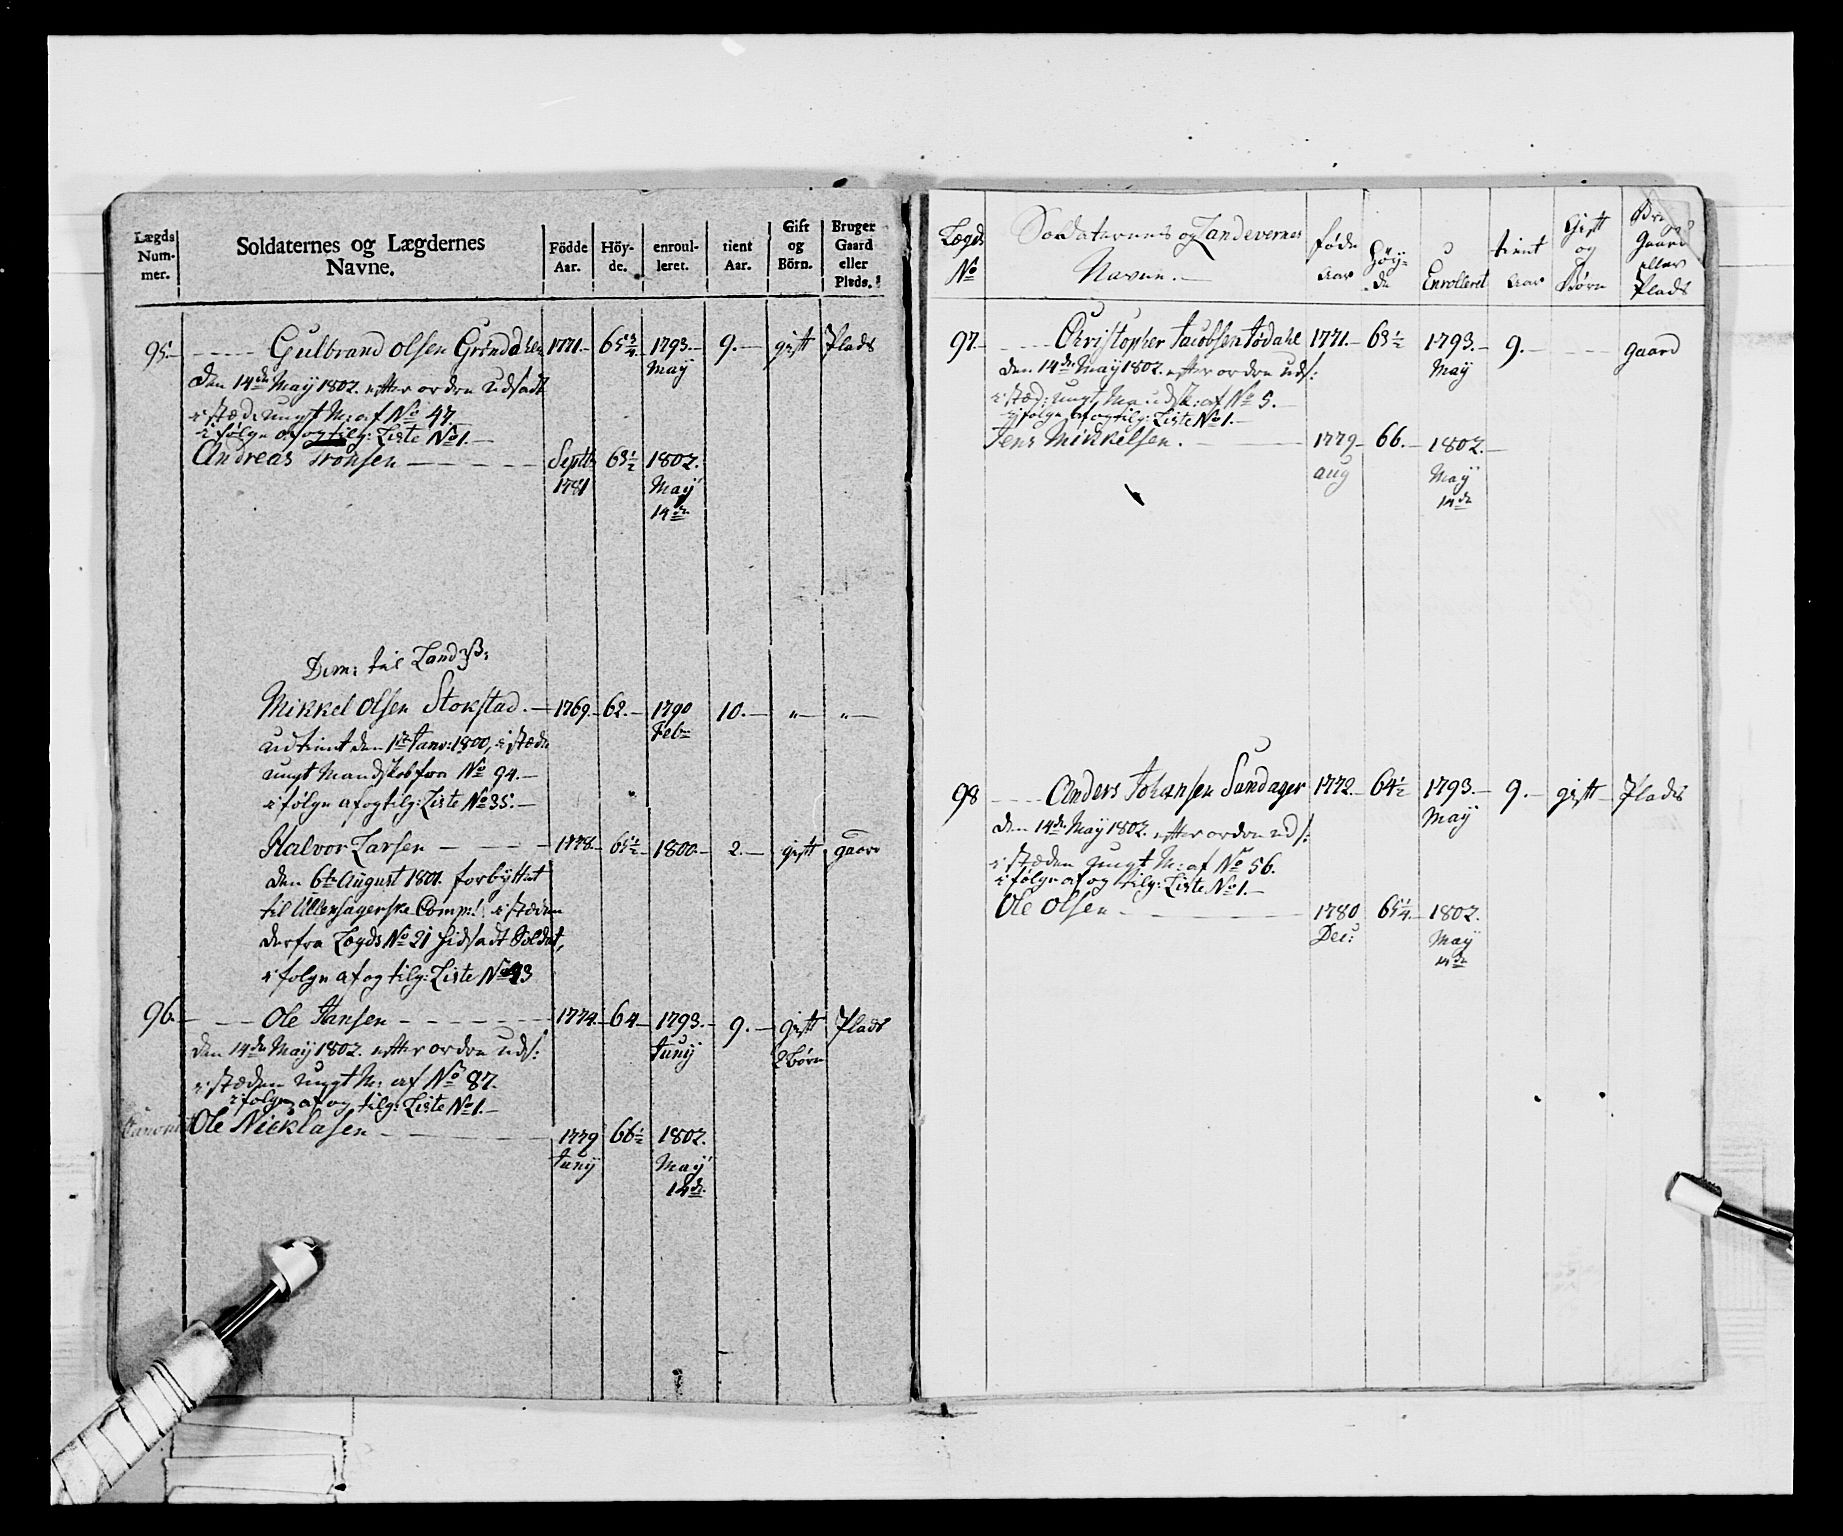 Lægds Nummer. Soldaternes og Lægdernes Navne. Födde Aar. Höyde. enroulleret. tient Aar. Gift og Börn. Bruger Gaard eller Plads.
95. Gulbrand Olsen Gröndahlen 1771. 65 3/4 1793. 9. gift Plads
May
den 14de May 1802. efter ordre udsadt
i stæd: ungt M: af No 47.
i følge af og tilg: Liste No 1.
Andreas Tronsen Septb 63 1/2 1802.
1781 May
14de
Dim: til Land
Mikkel Olsen Stokstad. 1769. 62. 1790 10. " "
Feb
udtient den 1te Janv: 1800, i stæde
ungt Mandskab fra No 94.
i følge af og tilg: Liste No 35.
Halvor Larsen 1778. 65 1/2 1800. 2. gift gaard
den 6te August 1801. forbyttet
til Ullensagerske Comp:! i stæden
derfra Lægds No 21 hidsadt Soldat,
i følge af og tilg: Liste No 43
96. Ole Hansen 1774. 64 1793. 9. gift Plads
Juny 2 børn
den 14de May 1802. efter ordre uds:
i stæden ungt M: af No 87.
i følge af og tilg: Liste No 1.
Ole Nicklasen 1779 66 1/2 1802.
Juny May
14de
Lægds No Soldaternes og Landevernes Navne. føde aar Höyde Enrolleret tient aar Gift og Börn Gaard eller Plads
97. Christopher Jacobsen Tødahl 1771. 63 1/2 1793. 9. gaard
May
den 14de May 1802. efter ordre uds:
i stæd: ungt Mandsk: af No 5.
i følge af og tilg: Liste No 1.
Jens Mikkelsen. 1779 66. 1802.
aug May
14de
98 Anders Johansen Sundager 1772. 64 1/2 1793. 9. gift Plads
May
den 14de May 1802. efter ordre uds:
i stæden ungt M: af No 56.
i følge af og tilg: Liste No 1.
Ole Olsen 1780 65 1/4 1802.
Dec: May
14de